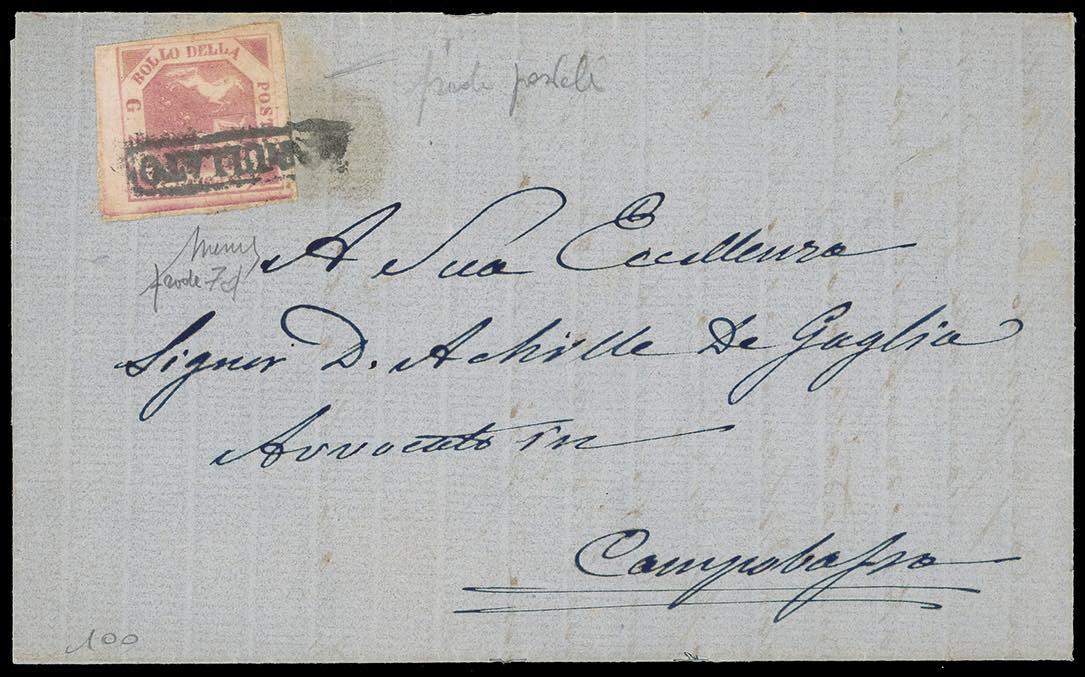 BOLLO DELLA
POSTA
G
ANNULLATO
frode postali
frode 7
A Sua Eccellenza
Signor D. Achille De Gaglia
Avvocato in
Campobasso
100